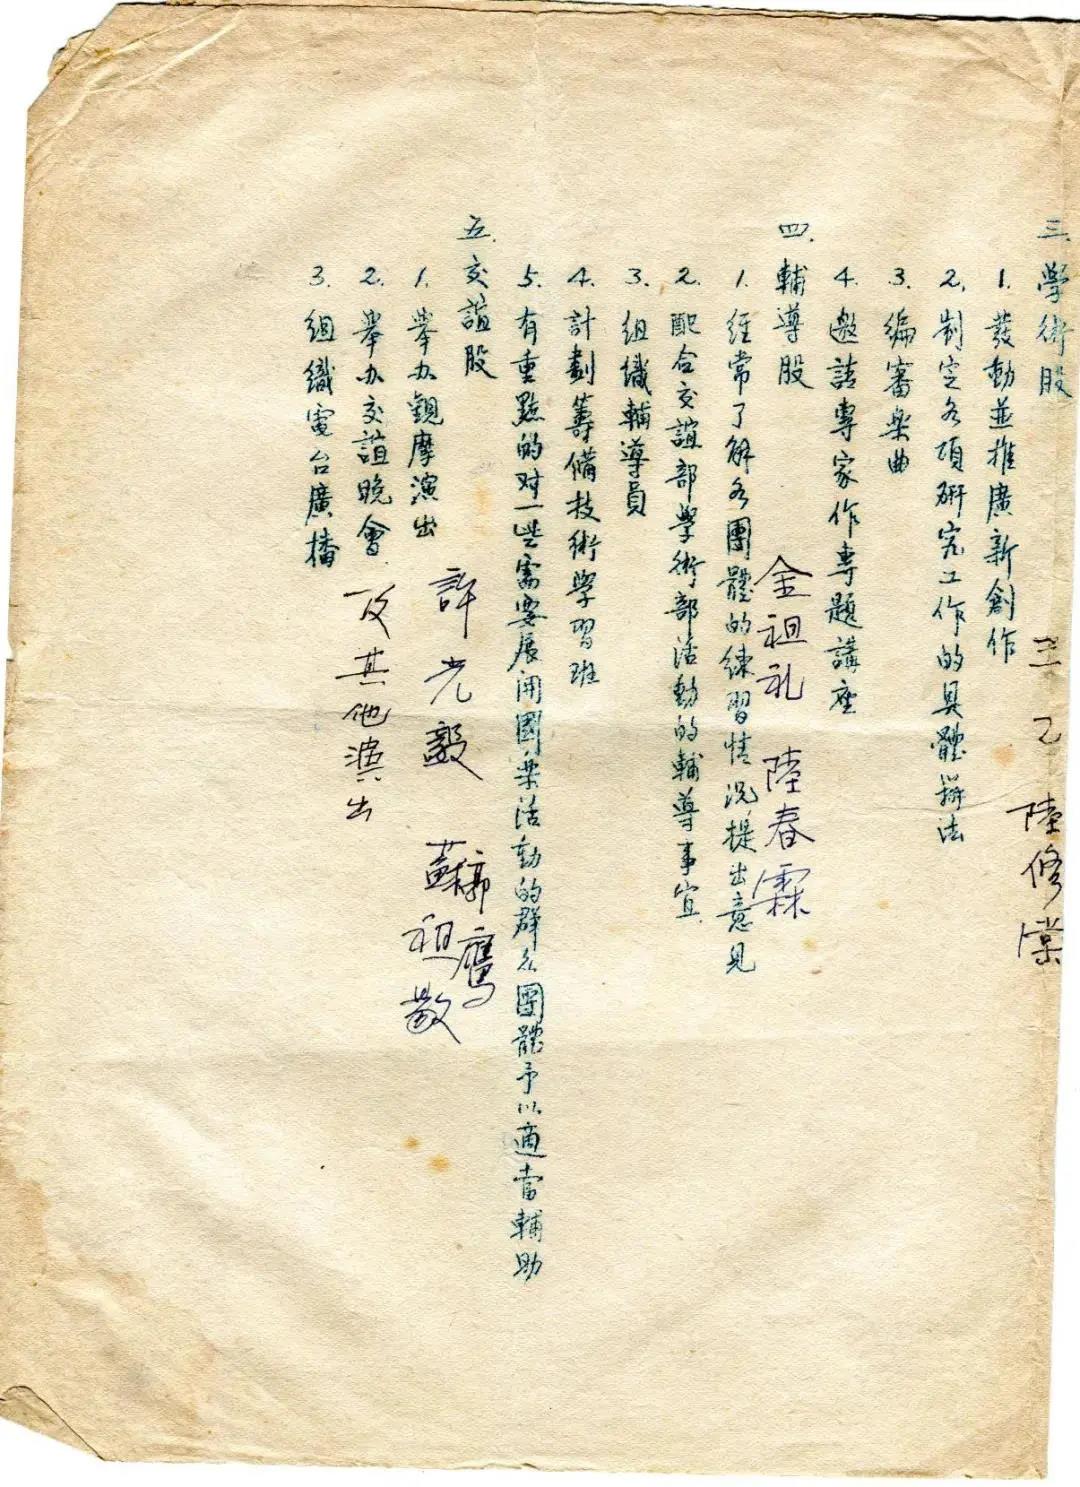 三.學術股
1.發動並推廣新創作
王乙 陸修棠
2.制定各項研究工作的具體辦法
3.编審楽曲
4.邀請專家作專題講座
四.輔導股
金祖礼 陸春霖
1.经常了解各團體的練習情況,提出意見
2.配合交誼部學術部活動的輔導事宜
3.组織輔導員
4.計劃籌備技術学習班
5.有重點的对一些需要展開國樂活動的群众團體予以適當輔助
五.交誼股
許光毅 蘇祖敭
1.舉办觀摩演出
2.舉办交誼晚會
及其他演出
3.组織電台廣播